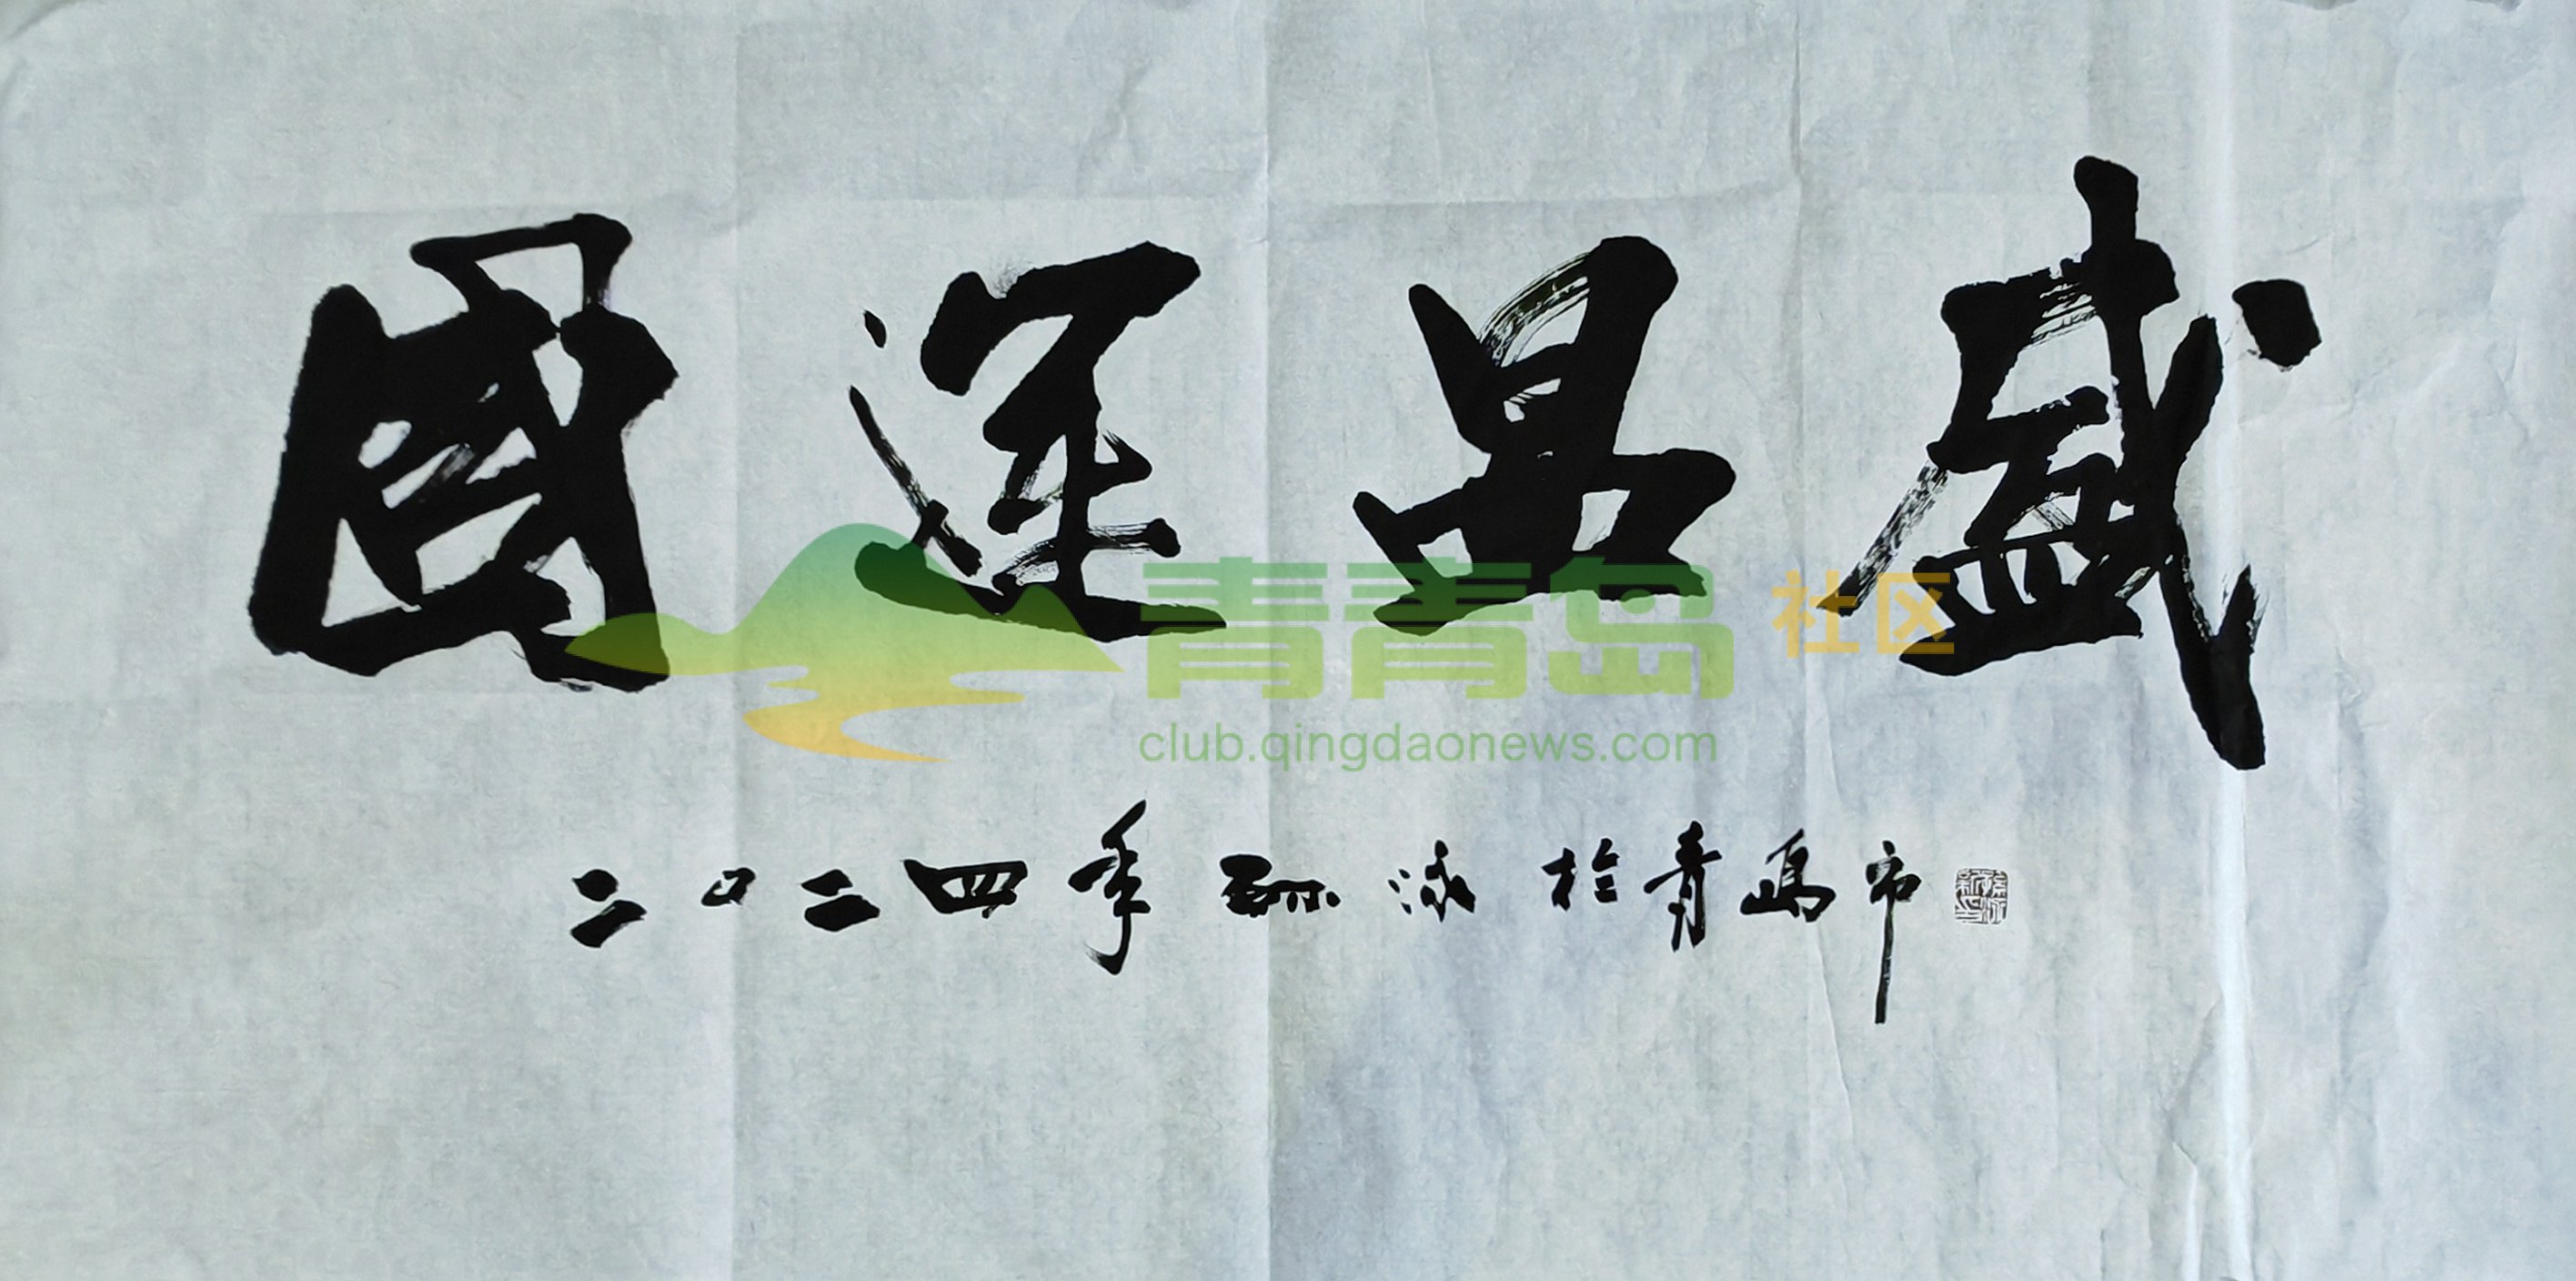 國運昌盛
青青岛 社区
club.qingdaonews.com
二〇二四年 孫泳 於青島市